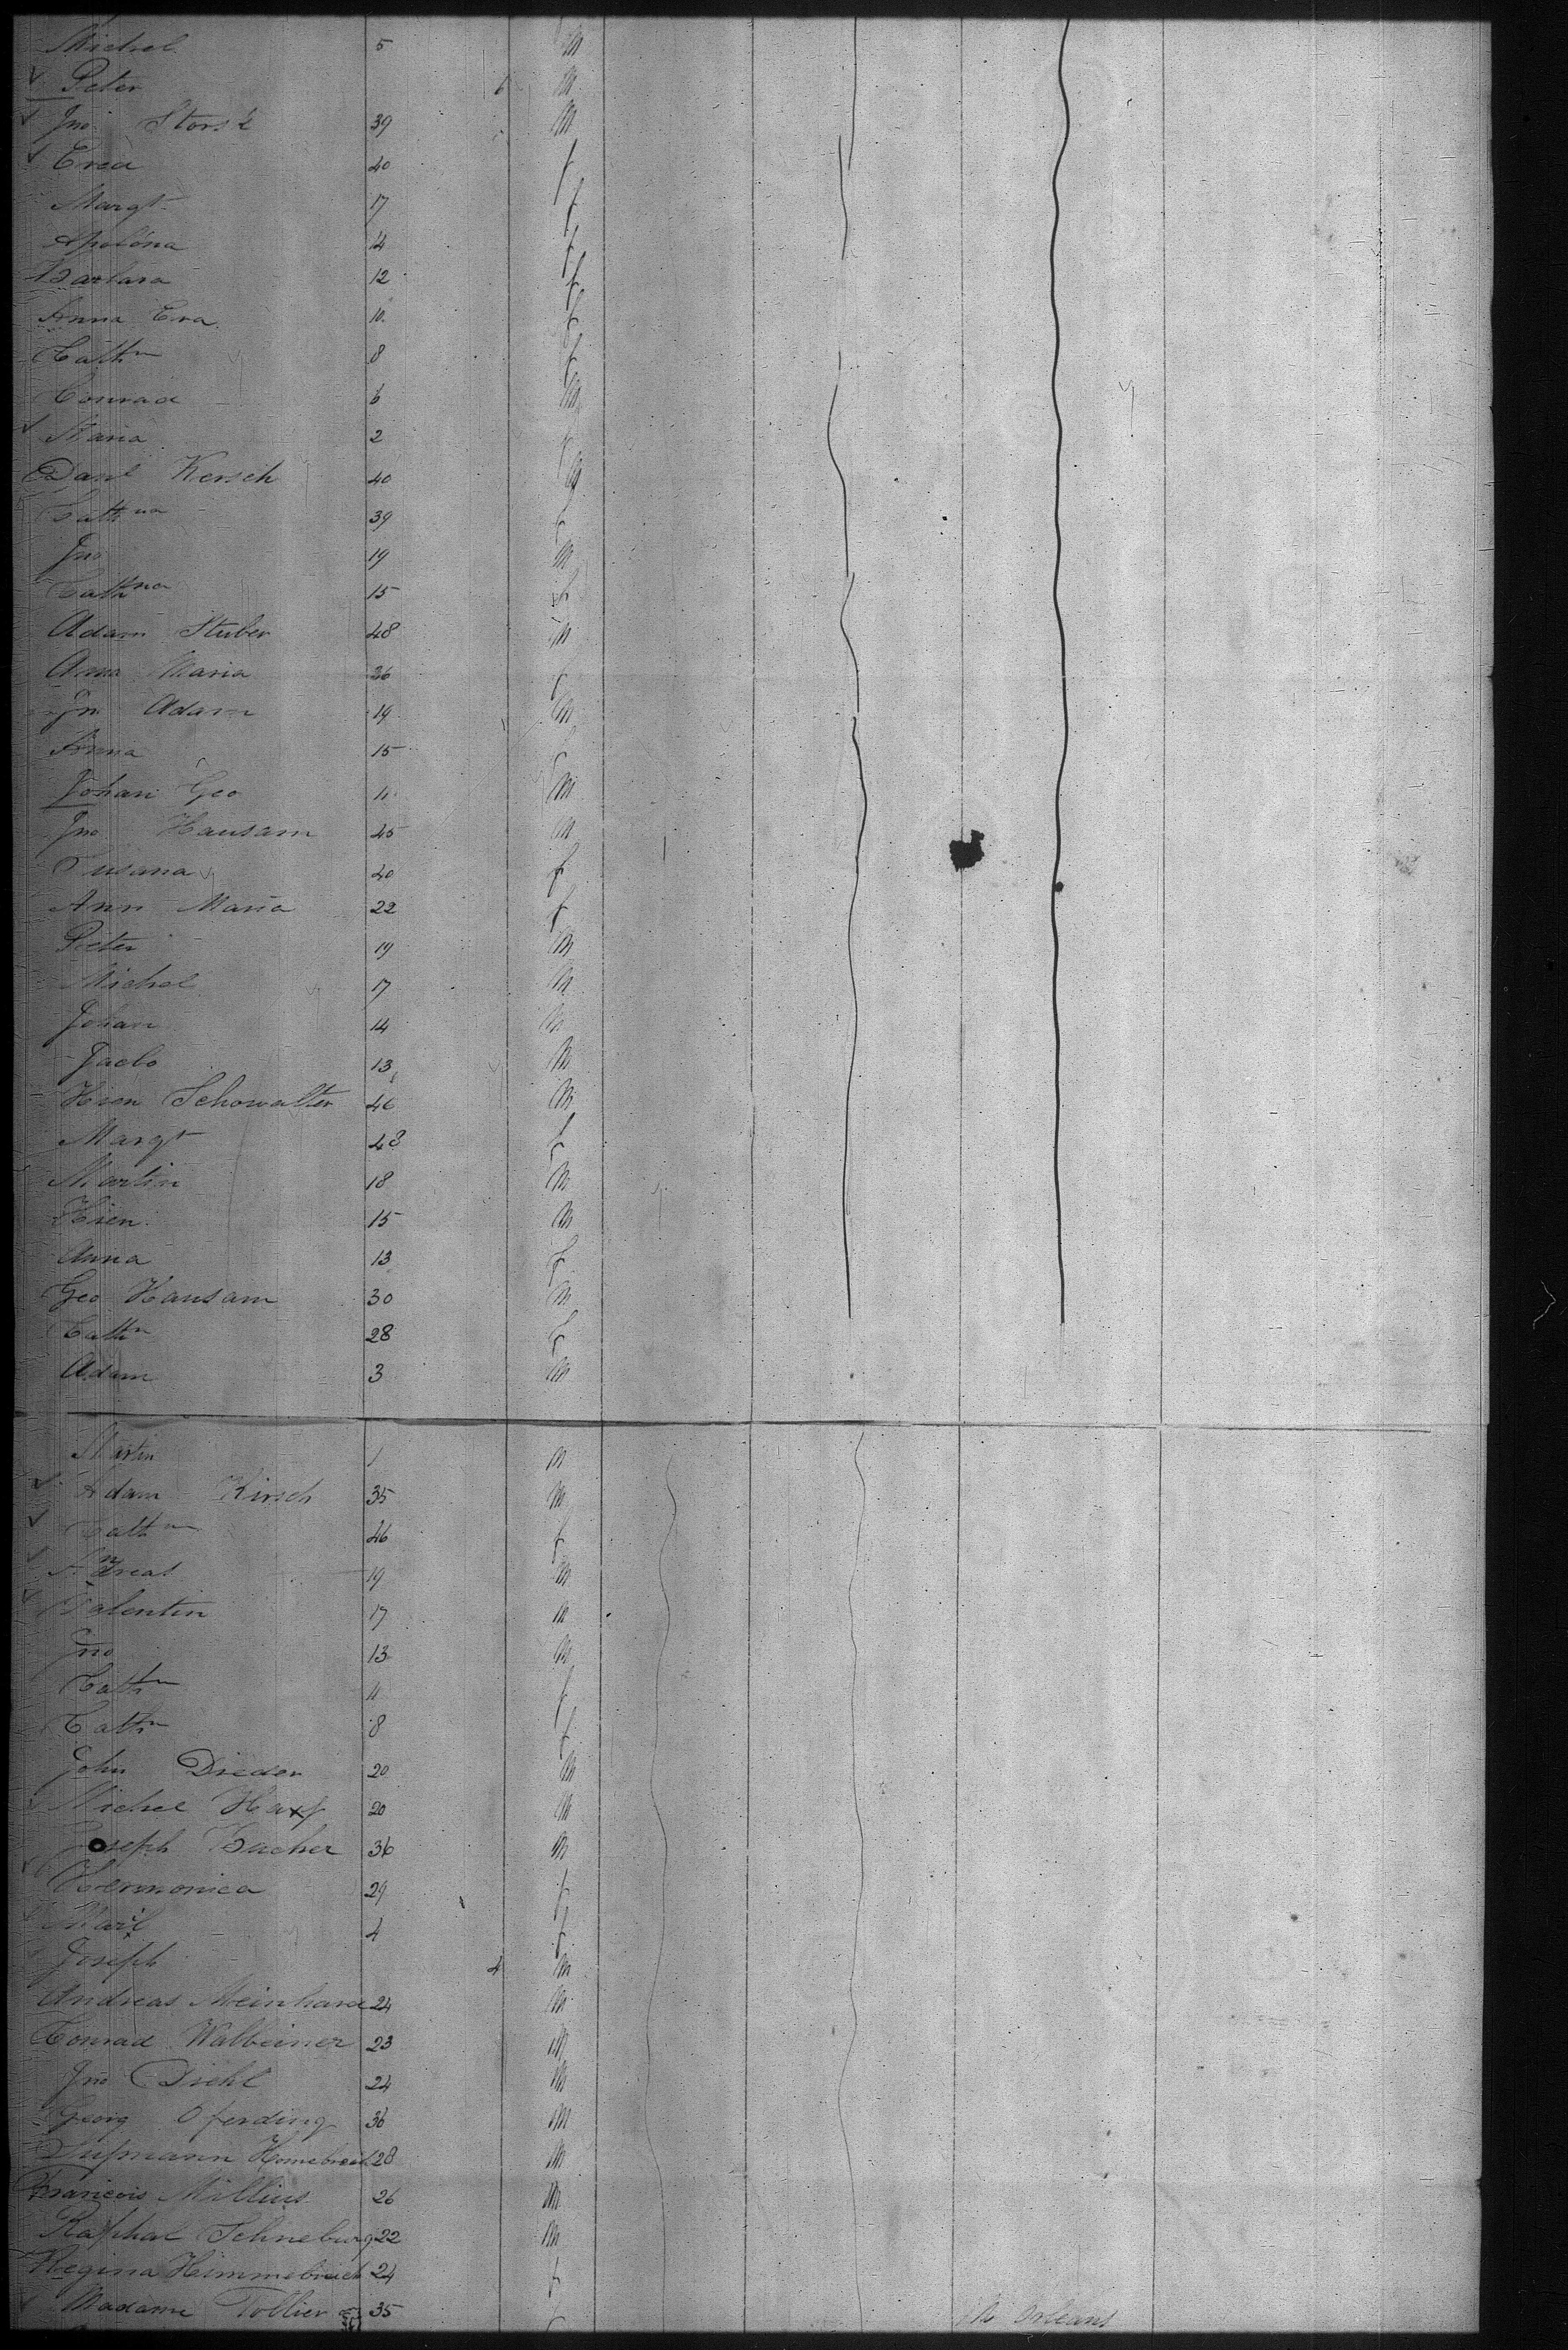 Michel 5 m
Peter 6 m
Jno Storsk 39 m
Eva 40 f
Margt 17 f
Apolona 14 f
Barbara 12 f
Anna Eva 10 f
Cathn 8 f
Conrad 6 m
Maria 2
Danl Kersch 40 m
Cathna 39 f
Jno 19 m
Cathna 15 f
Adam Stuber 48 m
Ana Maria 36 f
Jn Adam 19 m
Anna 15 f
Johan Geo 11 m
Jno Hausam 45 m
Susana 40 f
Ann Maria 22 f
Peter 19 m
Michel 17 m
Johan 14 m
Jacbo 13 m
Hien Schowalter 46 m
Margt 48 f
Martin 18 m
Hien 15 m
Anna 13 f
Geo Hausam 30 m
Cathn 28 f
Adam 3 m
Martin 1 m
Adam Kirsch 35 m
Cathn 46 f
Andreas 19 m
Valentin 17 m
Jno 13 m
Cathn 11 f
Cathn 8 f
John Dieder 20 m
Michel 20 m
Joseph Bacher 36 m
Hermonica 29 f
4 f
Joseph 4 m
Andreas Meinhard 24 m
Conrad Walbeiner 23 m
Jno Diehl 24 m
Georg Oferding 36 m
28 m
Francois Millius 26 m
Raphal Schneburg 22 m
Regina Himmebreich 24 f
Madame Tollier 35 f N Orleans